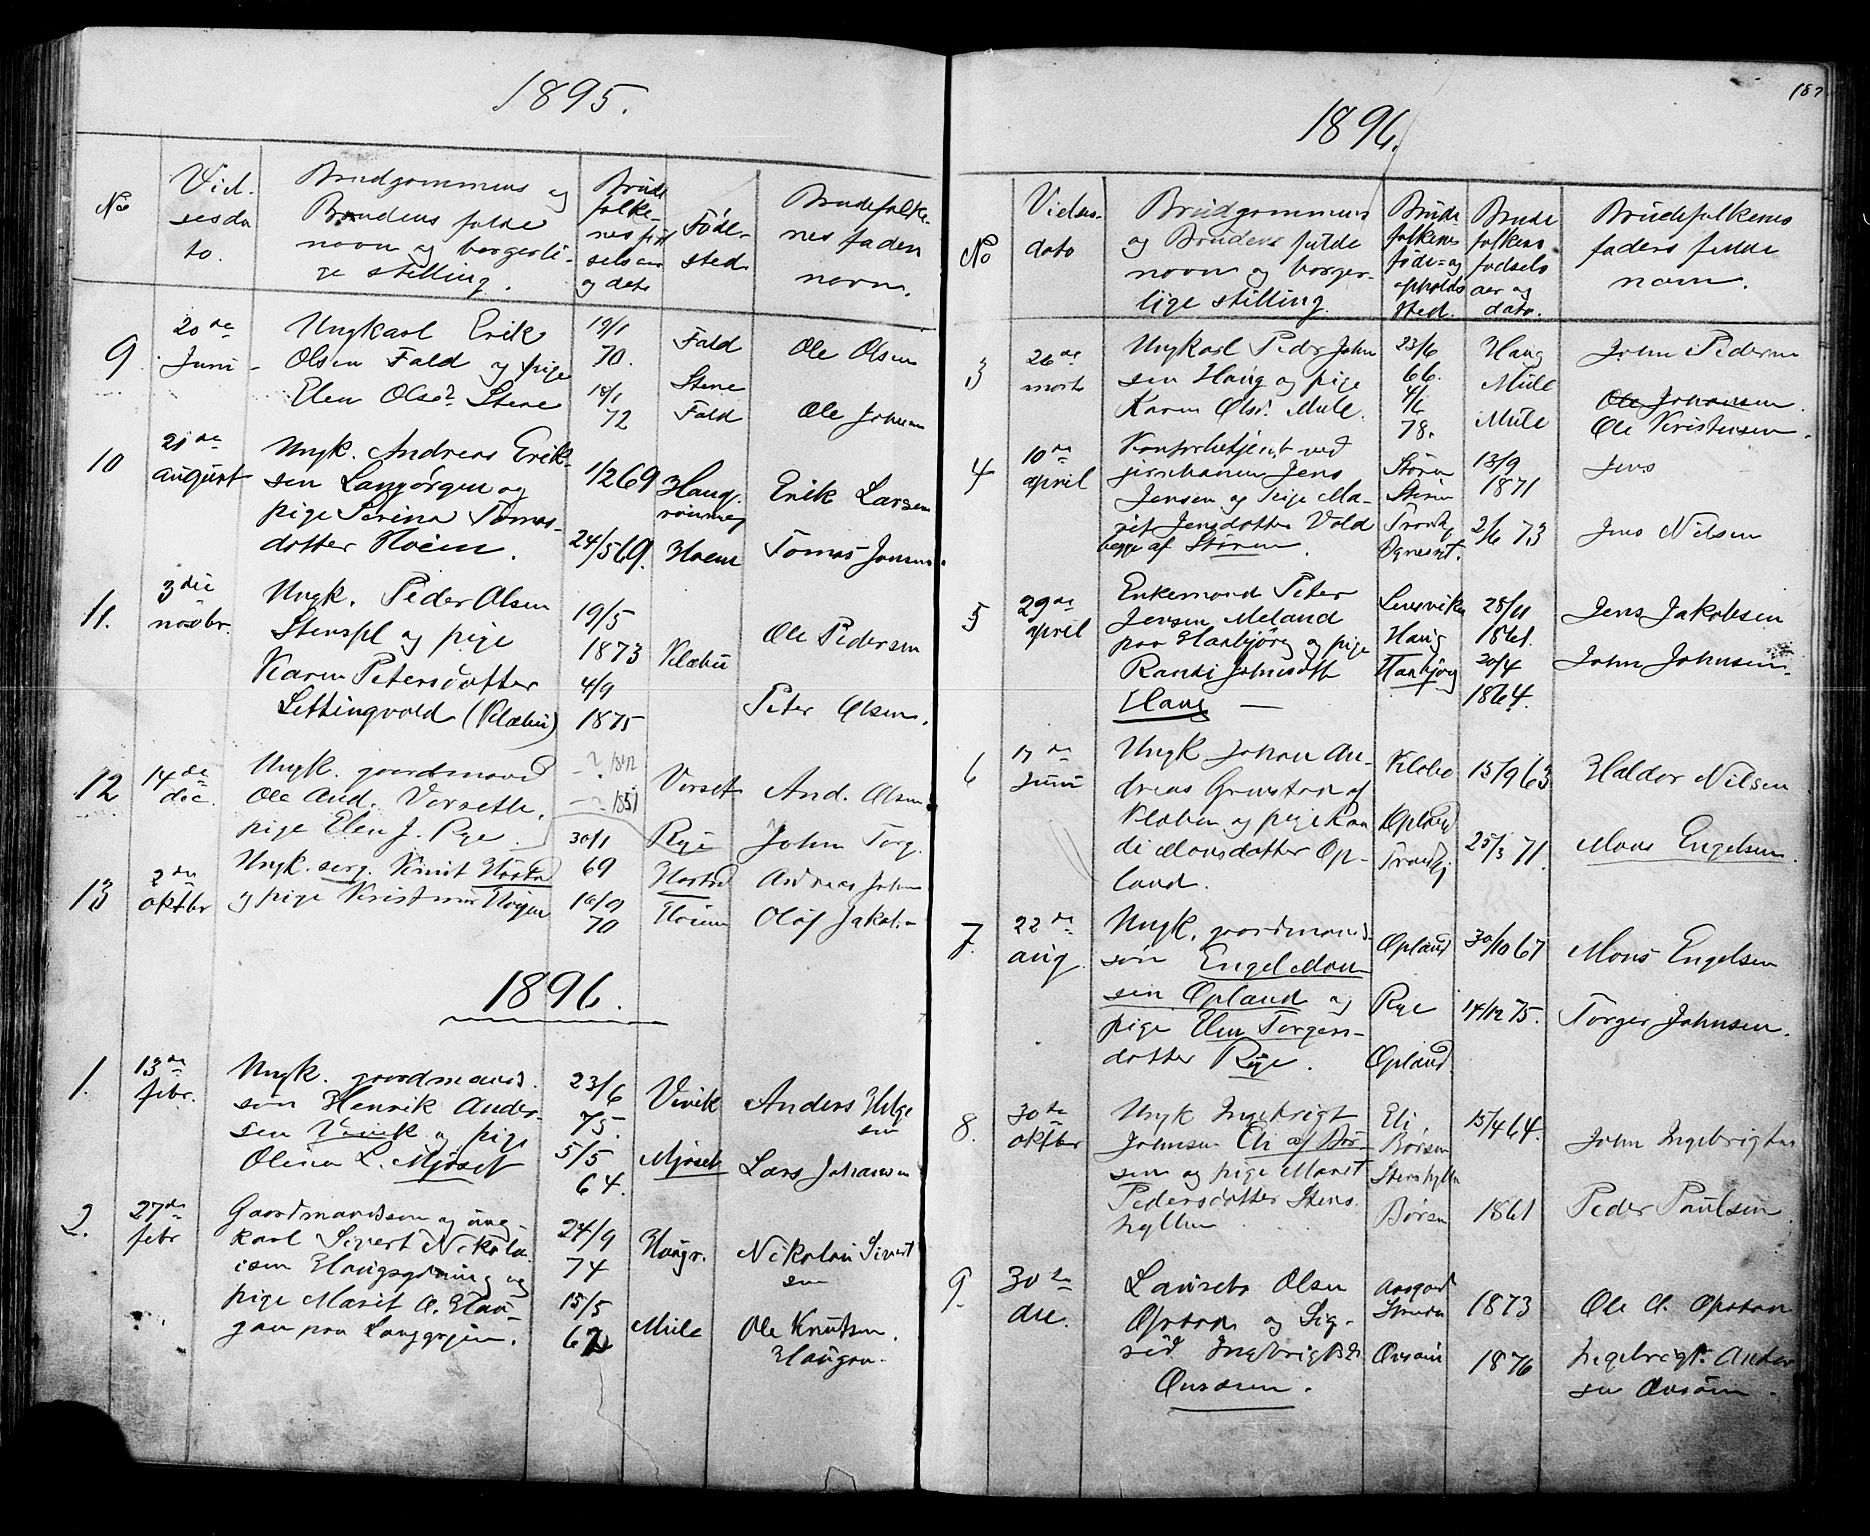 1895.
No
Vid-
sesda
to.
Brudgommens og
Brudens fulde
navn og borgerli-
ge stilling.
Brude
folke-
nes fød
selsaar
og dato
Føde-
sted
Brudefolke-
nes faders
navn.
9.
20de
Juni
Ungkarl Erik
Olsen Fald og pige
Elen Olsd. Stene
19/1
70.
18/1
72
Fald
Stene
Fald
Ole Olsen
Ole Johnsen
10
21de
august
Ungk. Andreas Erik-
sen Langørgen og
pige Serina Tomas-
datter Hoem.
1/2 69
24/5 69.
Haug.
Hoem
Erik Larsen
Tomas Jonsen
11.
3die
novbr.
Ungk. Peder Olsen
Stenspl og pige
Karen Petersdatter
Lettingvold (Klæbu)
19/5
1873
4/9
1875
Klæbu
Ole Pedersen
Peter Olsen.
12
14de
dec.
Ungk. gaardmand
Ole And. Vorseth.
pige Elen J. Rye.
- ? 1842
- ? 1851
30/1
Vorset
Rye
And. Olsen
John Torg.
13
2den
oktbr
Ungk. serg. Hastad
og pige
69
70
Hastad
Hoem
Andreas John
Olof Jakob
1896.
1.
13de
febr.
Ungk. gaardmands.
søn Henrik Ander-
sen Vivik og pige
Olina L. Mjøset
23/6
75.
5/5
64.
Vivik
Mjøset
Anders Helge
sen
Lars Johansen
2.
27de
febr
Gaardmandsøn og ung-
karl Sivert Nikola
isen og
pige Marit O. Hau-
gan paa Langørgen.
24/9
74
15/5
67
Haugr.
Mule
Nikolai Sivert
sen
Ole Knutsen.
Haugan.
187
1896.
No
Vidses-
dato
Brudgommens
og Brudens fulde
navn og borger-
lige stilling.
Brude
folkenes
føde- og
opholds
sted.
Brude
folkens
fødsels
aar og
dato.
Brudefolkenes
faders fulde
navn.
3
26de
marts
Ungkarl Peder John
sen Haug og pige
Karen Olsd. Mule.
23/6
66.
4/6
78.
Haug
Mule
Mule
John Pedersen
Ole Johansen.
Ole Kristensen.
4
10de
april
Kontorbetjent ved
jernbanen Jens
Jensen og Pige Ma-
rit Jensdatter Vold
begge af Støren.
Støren
Støren
Trondhj
13/9
1871
2/6 73
Jens
Jens Nilsen
5
29de
april
Enkemand Peter
Jensen Meland
paa Hanbjørg og pige
Randi Johnsdatt
Haug —
Lensviken
Haug
Hanbjørg
28/11
1861.
20/4
1864.
Jens Jakobsen
John Johnsen.
6
17de
juni
Ungk Johan An-
dreas Grustan af
Klæbu og pige Ran
di Monsdatter Op-
land.
Klæbo
Opland
Trondhj
15/9 63
25/3 71.
Haldor Nilsen
Mons Engelsen.
7.
22de
aug.
Ungk. gaardmands-
søn Engel Mon
sen Opland og
pige Elen Torgers-
datter Rye.
Opland
Rye
Opland.
30/10 67
14/12 75.
Mons Engelsen
Torger Johnsen.
8.
30te
oktbr
Ungk Ingebrigt
Johnsen Eli af Bør-
sen og pige Marit
Pedersdatter Stens
hyllen
Eli
Børsen
Stenshyllen
Børsen
15/4 64.
1861
John Ingebrigtsen
Peder Paulsen
9.
30te
dec.
Laurets Olsen
Opstan og Sig-
rid Ingebrigtsdt
Øusøien.
Aasgard
1873
1876
Ole O. Opstan
Ingebrigt Ander
sen